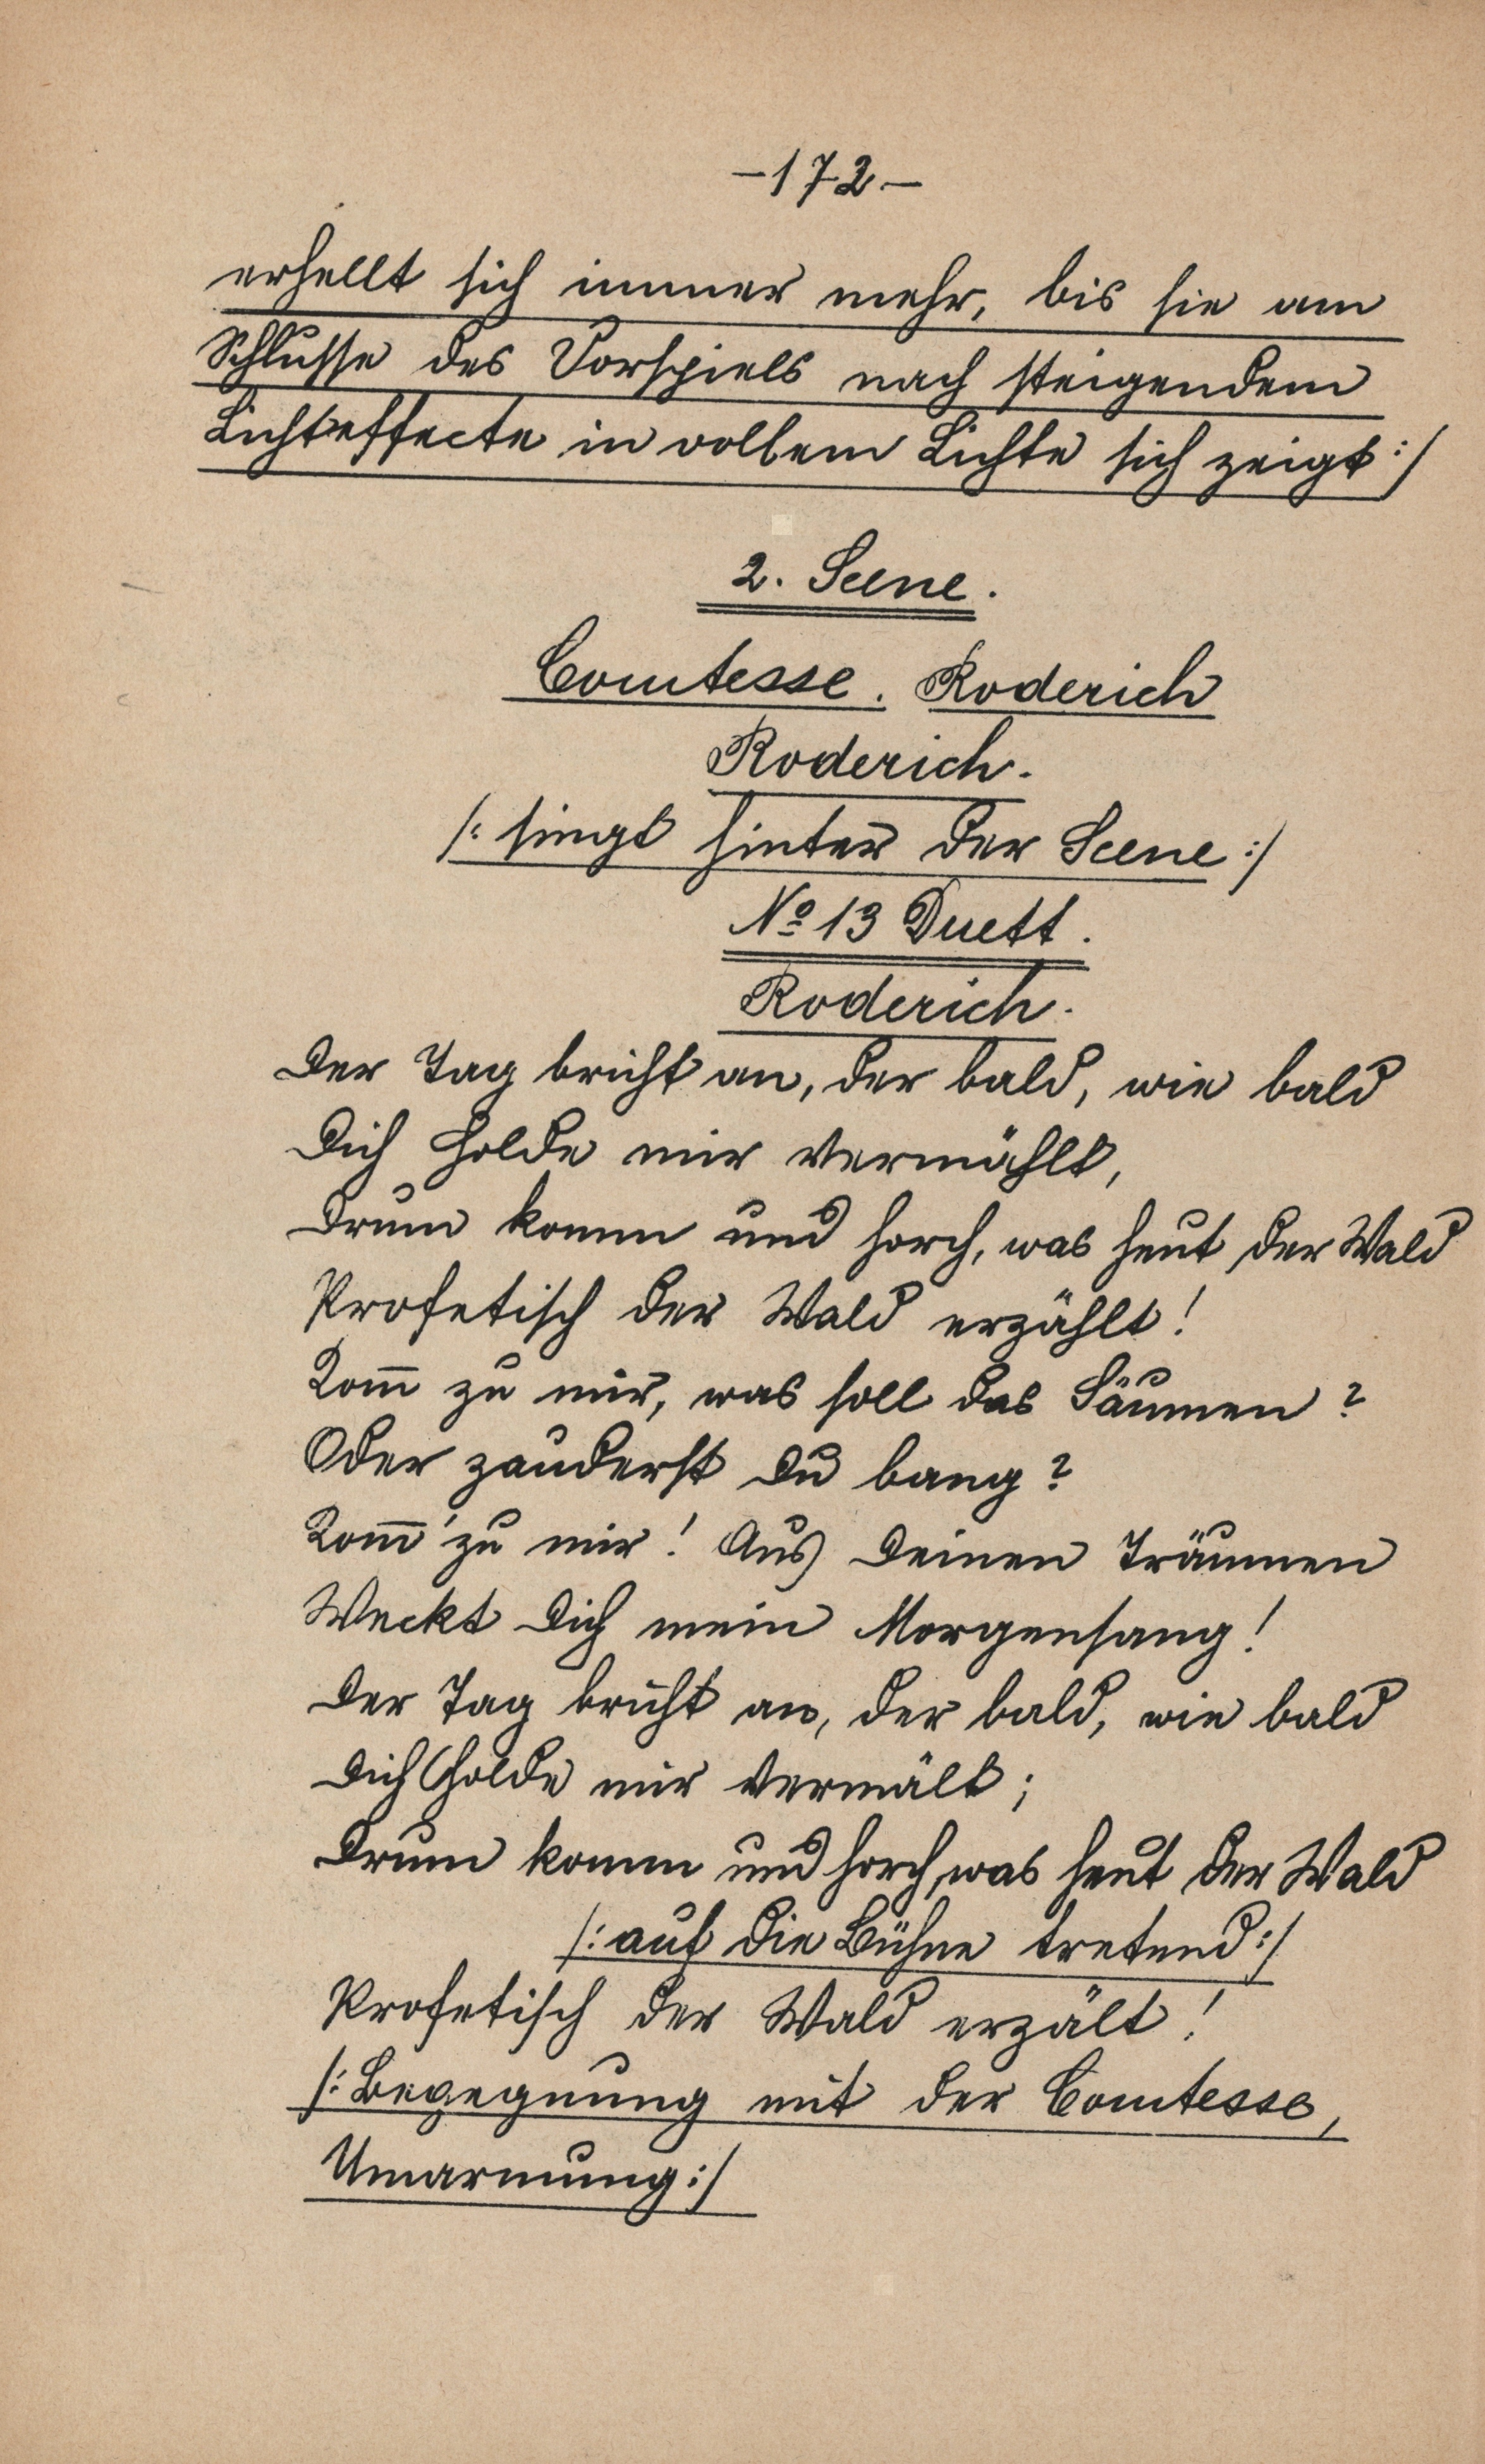 -172-
erhellt sich immer mehr, bis sie am
Schlusse des Vorspiels nach steigendem
Lichteffecte in vollem Lichte sich zeigt:/
2. Scene.
Comtesse. Roderich
Roderich.
/: singt hinter der Scene:/
No 13 Duett.
Roderich.
Der Tag bricht an, der bald, wie bald
Dich Holde mir vermählt,
Drum komm und horch, was heut der Wald
Profetisch der Wald erzählt!
Kom̅ zu mir, was soll das Säumen?
Oder zauderst Du bang?
Kom̅' zu mir! Aus Deinen Träumen
Weckt Dich mein Morgensang!
Der Tag bricht an, der bald, wie bald
Dich Holde mir vermält;
Drum komm und horch, was heut der Wald
/: auf die Bühne tretend:/
Profetisch der Wald erzält!
/: Begegnung mit der Comtesse,
Umarmung:/